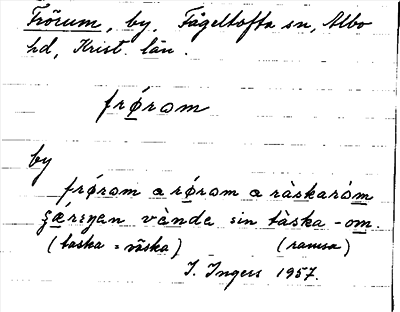 Frörum, by, Fågeltofta sn, Albo
hd, Krist. län.
frǿrom
by
frǿrom a rǿrom a ràskaròm
vànda sin tàska -om.
(taska = väska) (ramsa)
I. Ingers 1957.